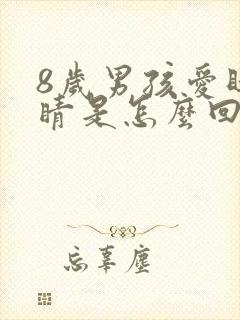 8歲男孩愛眨
睛是怎麼回
忘辜塵